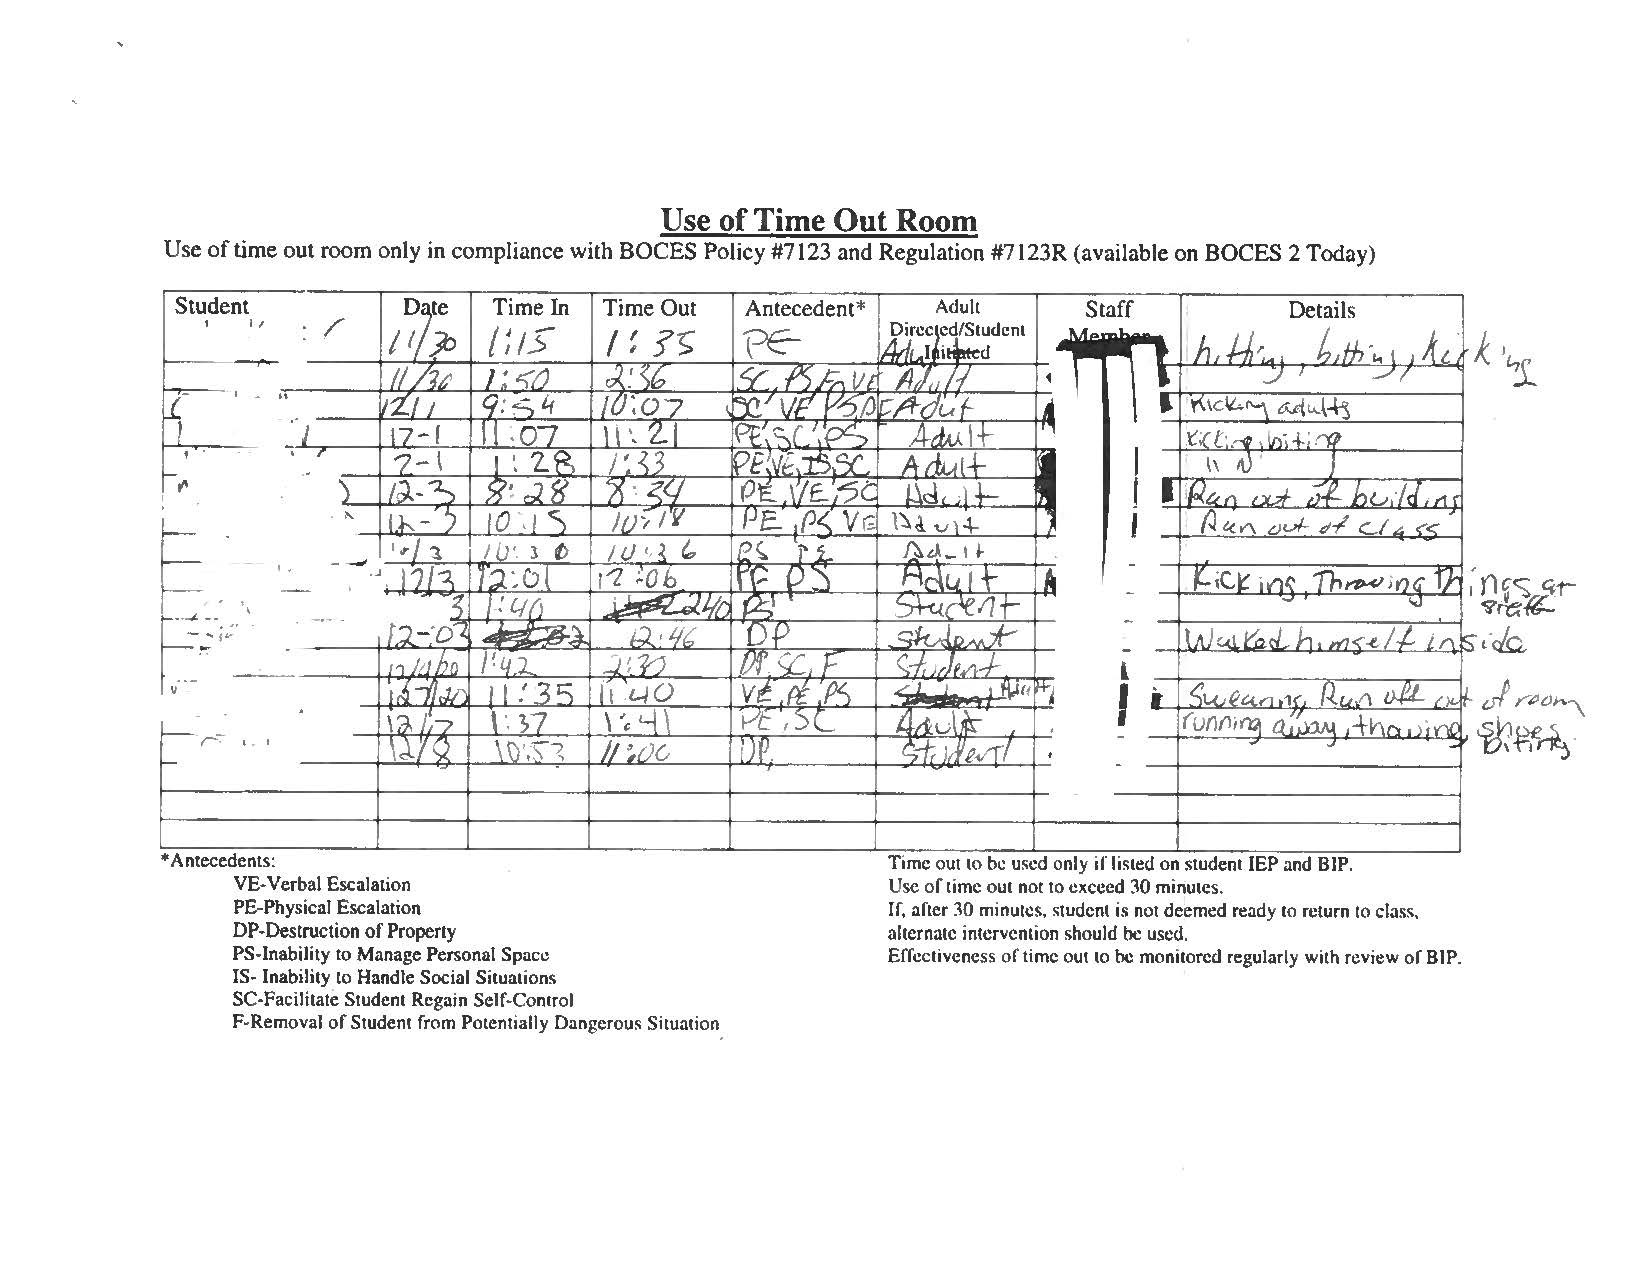 Use of Time Out Room
Use of time out room only in compliance with BOCES Policy #7123 and Regulation #7123R (available on BOCES 2 Today)
Student Date Time In Time Out Antecedent* Adult Directed/Student Initiated Staff Member Details
11/30 1:15 1:35 PE Adult hitting, bitting, kick'ing
11/30 1:50 2:36 SC, PS, F, VE Adult
12/1 9:54 10:07 SC VE PS PE Adult Kicking adults
12-1 11:07 11:21 PE, SC, PS Adult Kicking, biting
2-1 1:28 1:33 PE, VE, IS, SC Adult 11 11
12-3 8:28 8:34 PE, VE, SC Adult Ran out of building
12-3 10:15 10:18 PE, PS VE Adult Ran out of class
/3 10:30 10:36 PS Adult
12/3 12:01 12:06 PE PS Adult Kicking, Throwing Things at staff
3 1:40 240 PS Student
12-03 12:46 DP student Walked himself inside
1:42 2:30 DP, SC, F Student
11:35 11:40 VE, PE, PS Adult Swearing, Run off out of room
12/7 1:37 1:41 PE, SC Adult running away, thowing shoes, Biting
12/8 10:53 11:00 DP, Student
*Antecedents:
VE-Verbal Escalation
PE-Physical Escalation
DP-Destruction of Property
PS-Inability to Manage Personal Space
IS- Inability to Handle Social Situations
SC-Facilitate Student Regain Self-Control
F-Removal of Student from Potentially Dangerous Situation
Time out to be used only if listed on student IEP and BIP.
Use of time out not to exceed 30 minutes.
If, after 30 minutes, student is not deemed ready to return to class,
alternate intervention should be used.
Effectiveness of time out to be monitored regularly with review of BIP.